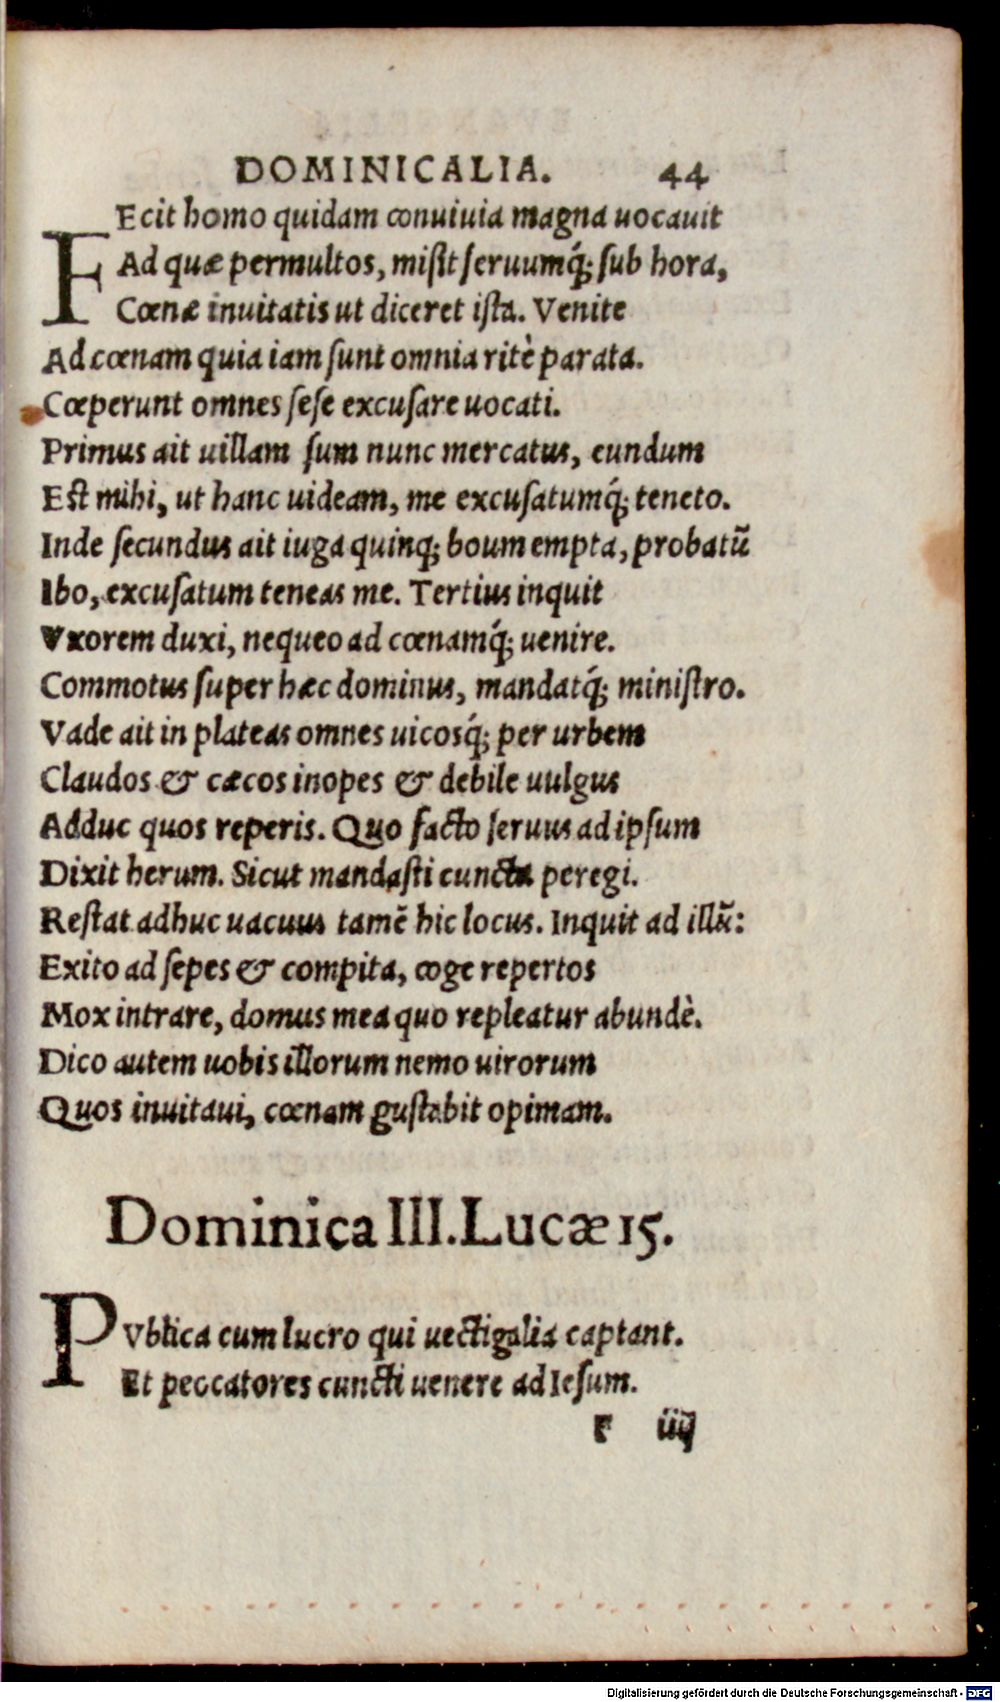 DOMINICALIA. 44
FEcit homo quidam conuiuia magna uocauit
Ad quæ permultos, misit seruumq́; sub hora,
Cœnæ inuitatis ut diceret ista. Venite
Ad cœnam quia iam sunt omnia ritè parata.
Cœperunt omnes sese excusare uocati.
Primus ait uillam sum nunc mercatus, eundum
Est mihi, ut hanc uideam, me excusatumq́; teneto.
Inde secundus ait iuga quinq; boum empta, probatū
Ibo, excusatum teneas me. Tertius inquit
Vxorem duxi, nequeo ad cœnamq́; uenire.
Commotus super hæc dominus, mandatq́; ministro.
Vade ait in plateas omnes uicosq́; per urbem
Claudos & cæcos inopes & debile uulgus
Adduc quos reperis. Quo facto seruus ad ipsum
Dixit herum. Sicut mandasti cuncta peregi.
Restat adhuc uacuus tamē hic locus. Inquit ad illū:
Exito ad sepes & compita, coge repertos
Mox intrare, domus mea quo repleatur abundè.
Dico autem uobis illorum nemo uirorum
Quos inuitaui, cœnam gustabit opimam.
Dominica III. Lucæ 15.
PVblica cum lucro qui uectigalia captant.
Et peccatores cuncti uenere ad Iesum.
F iiij
Digitalisierung gefördert durch die Deutsche Forschungsgemeinschaft - DFG